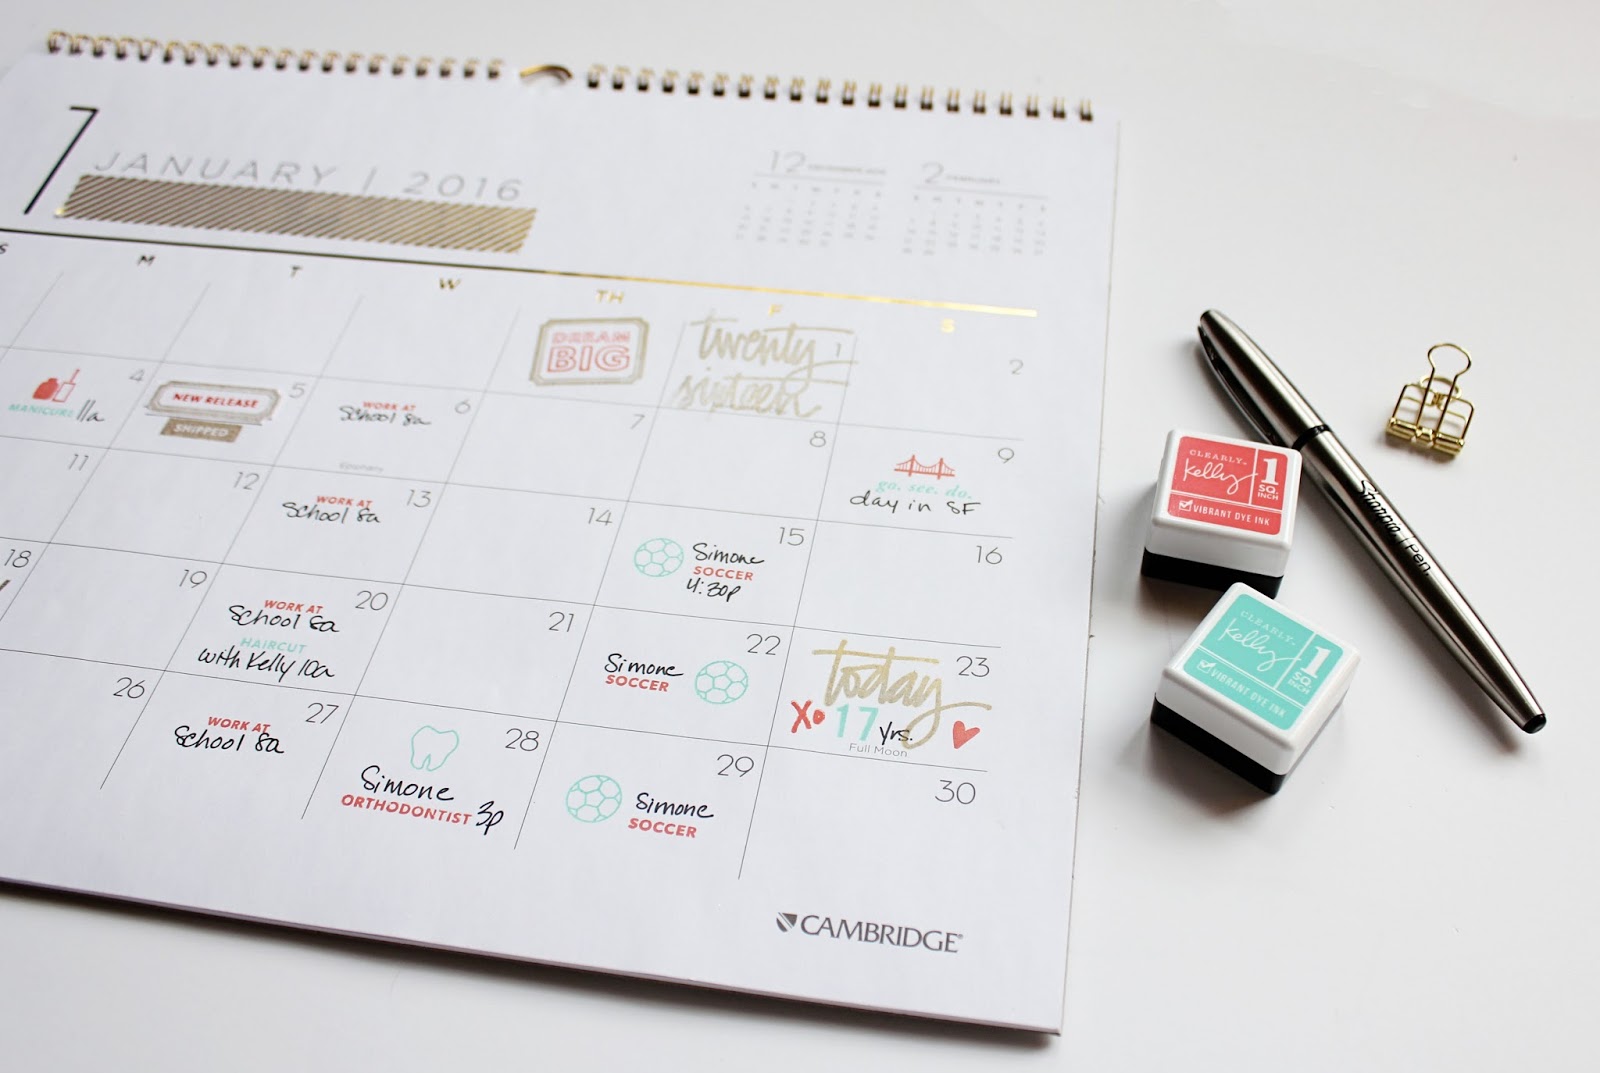 1
JANUARY | 2016
12
2 FEBRUARY
S M T W TH F S
DREAM
BIG
twenty
sixteen
1
2
4
MANICURE 11a
5
NEW RELEASE
SHIPPED
6
WORK AT
School 8a
Epiphany
7
8
9
go. see. do.
day in SF
11
12
13
WORK AT
School 8a
14
15
Simone
SOCCER
4:30p
16
18
19
20
WORK AT
School 8a
HAIRCUT
with Kelly 10a
21
22
Simone
SOCCER
23
today
XO 17 yrs.
Full Moon
26
27
WORK AT
School 8a
28
Simone
ORTHODONTIST 3p
29
Simone
SOCCER
30
CAMBRIDGE
CLEARLY
Kelly
1
SQ.
INCH
VIBRANT DYE INK
CLEARLY
Kelly
1
SQ.
INCH
VIBRANT DYE INK
Stampin' Pen.